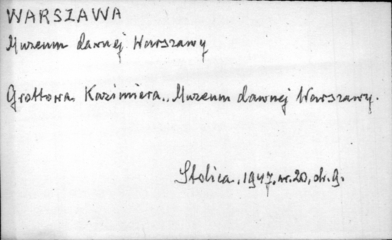 WARSZAWA
Muzeum dawnej Warszawy
Grottowa Kazimiera., Muzeum dawnej Warszawy.
Stolica, 1947, nr. 20, str. 9.